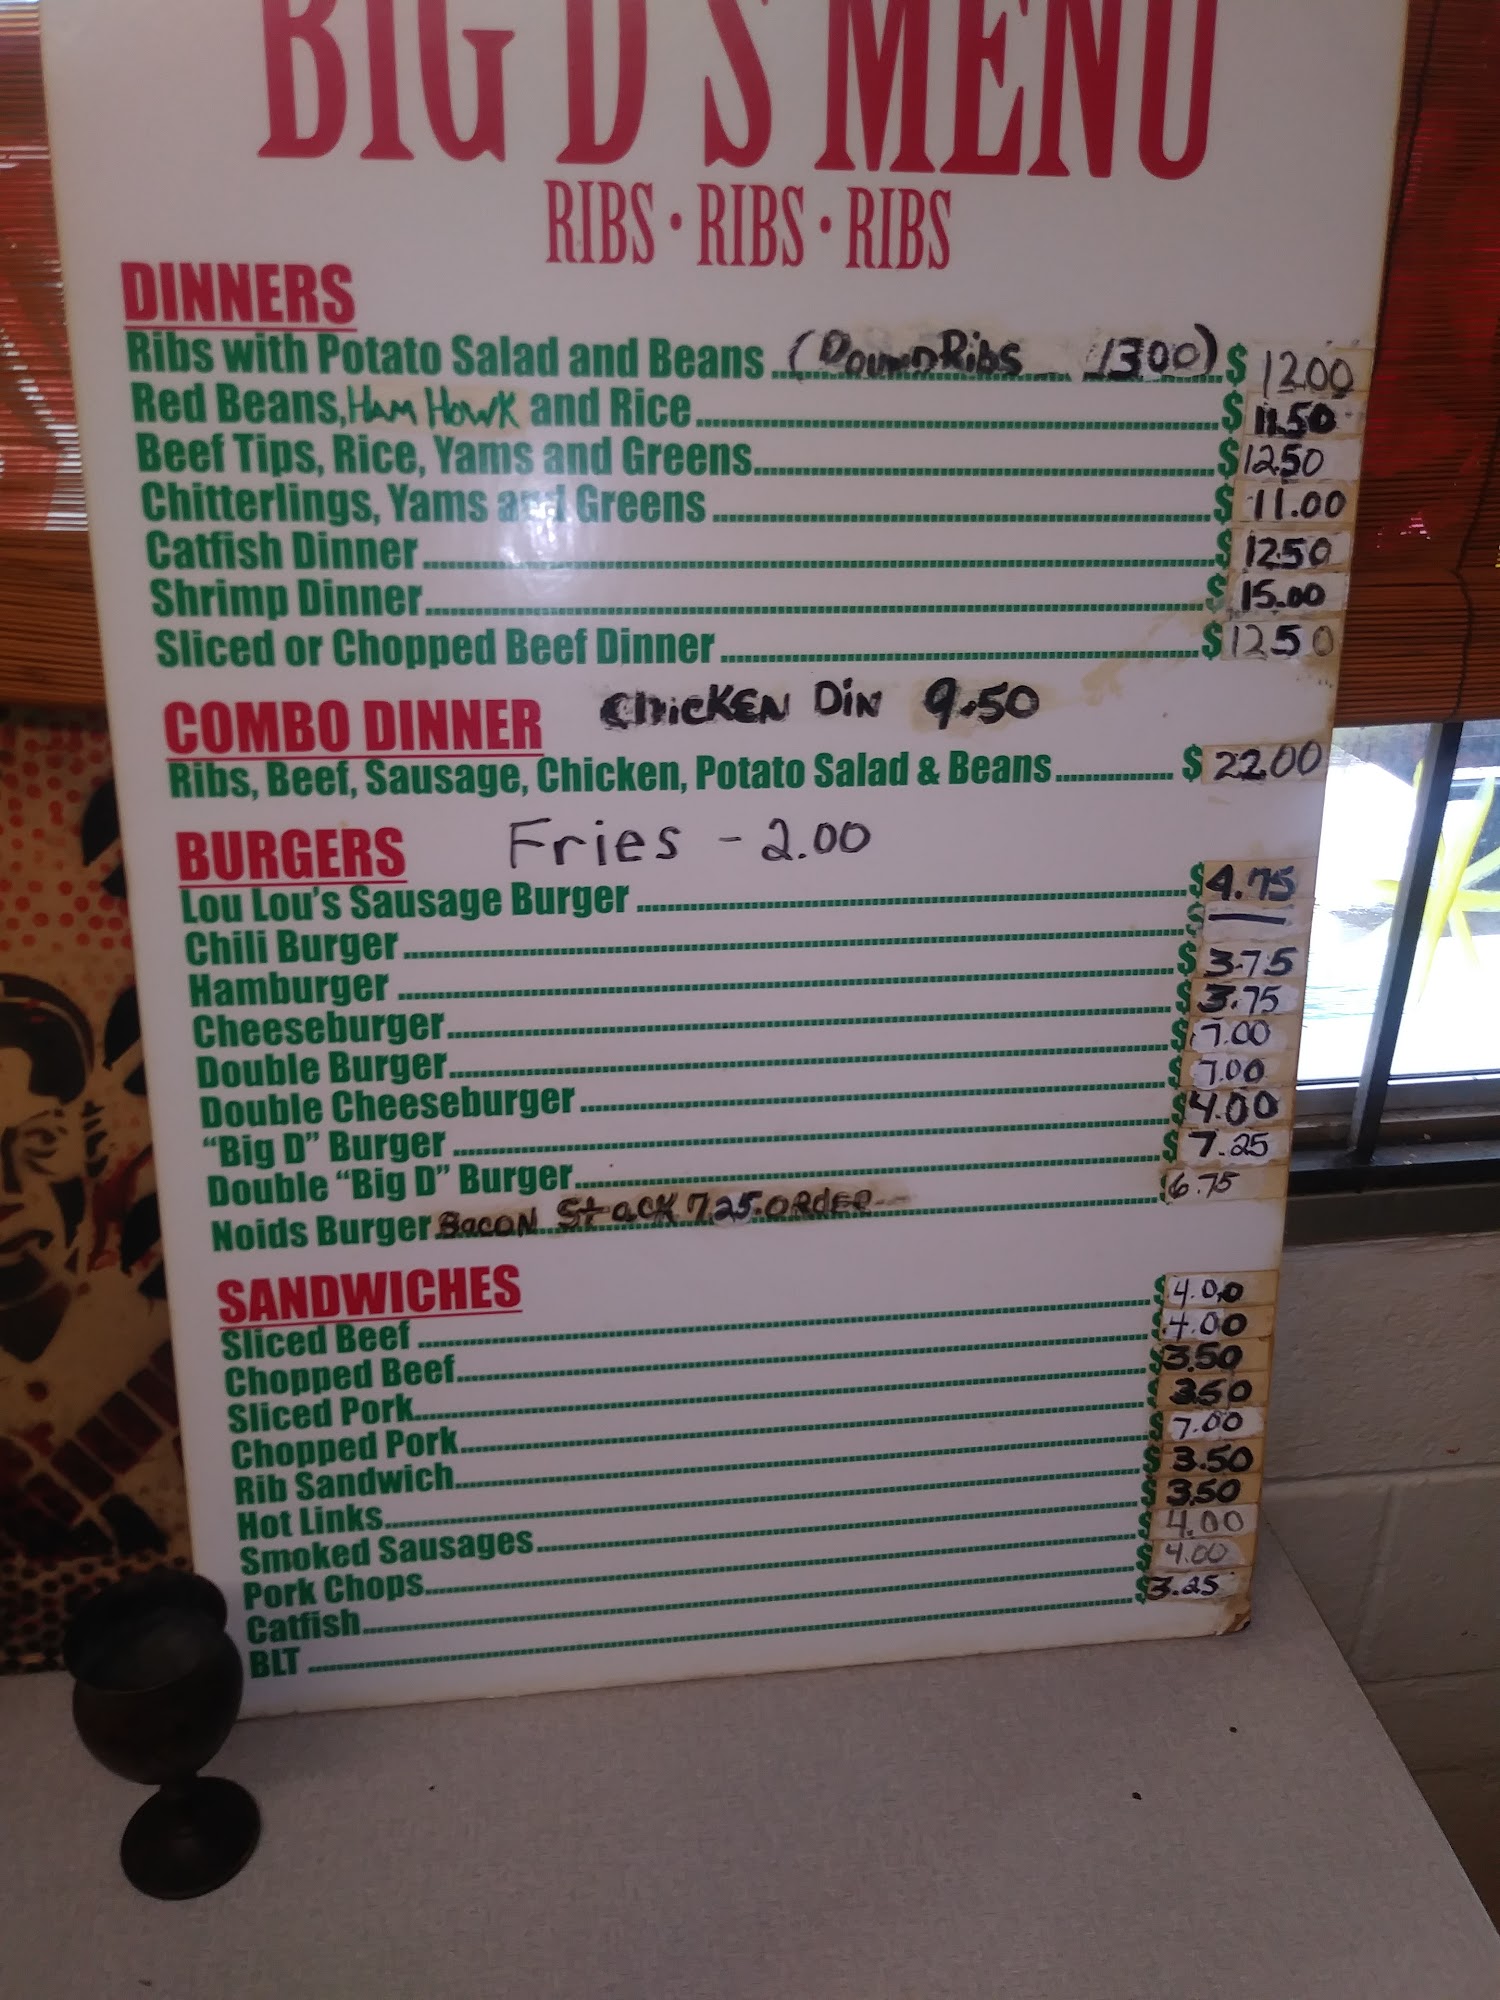 BIG D'S MENU
RIBS • RIBS • RIBS
DINNERS
Ribs with Potato Salad and Beans (Pound Ribs 1300) $ 1200
Red Beans, Ham Howk and Rice $ 11.50
Beef Tips, Rice, Yams and Greens $ 1250
Chitterlings, Yams and Greens $ 11.00
Catfish Dinner $ 1250
Shrimp Dinner $ 15.00
Sliced or Chopped Beef Dinner $ 1250
COMBO DINNER CHICKEN DIN 9.50
Ribs, Beef, Sausage, Chicken, Potato Salad & Beans $ 2200
BURGERS Fries - 2.00
Lou Lou's Sausage Burger $ 4.75
Chili Burger $ —
Hamburger $ 3.75
Cheeseburger $ 3.75
Double Burger $ 7.00
Double Cheeseburger $ 7.00
"Big D" Burger $ 4.00
Double "Big D" Burger $ 7.25
Noids Burger BACON STACK 7.25 ORDER $ 6.75
SANDWICHES
Sliced Beef $ 4.00
Chopped Beef $ 4.00
Sliced Pork $ 3.50
Chopped Pork $ 3.50
Rib Sandwich $ 7.00
Hot Links $ 3.50
Smoked Sausages $ 3.50
Pork Chops $ 4.00
Catfish $ 4.00
BLT $ 3.25